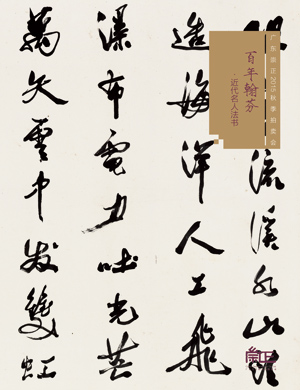 广东崇正2015秋季拍卖会
百年翰芬
近代名人法书
流溪水山
造海洋人工飛
瀑布電力吐光芒
萬丈雲中發雙虹